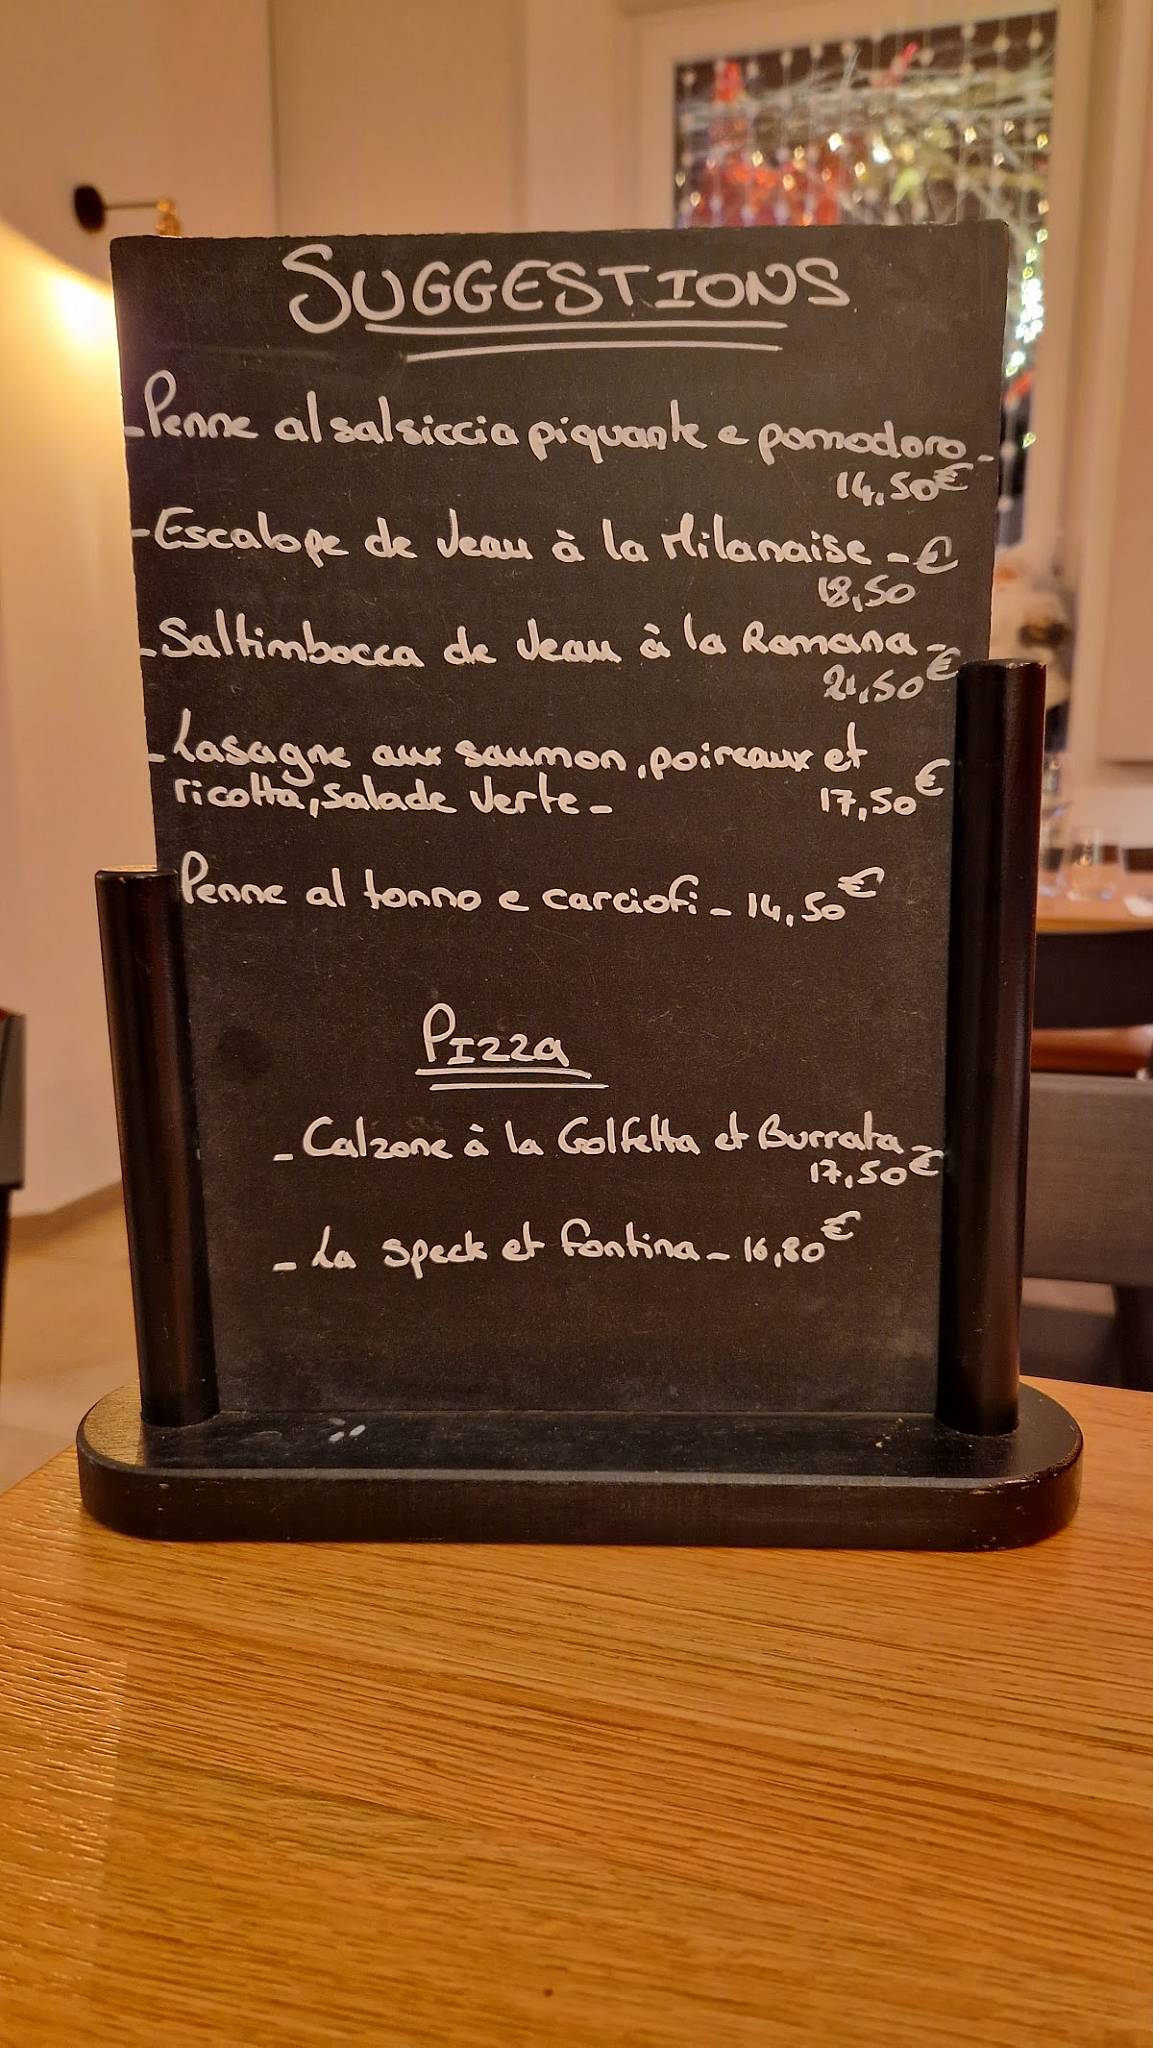 SUGGESTIONS
- Penne al salsiccia piquante e pomodoro -
14,50€
- Escalope de Veau à la Milanaise - €
18,50
- Saltimbocca de Veau à la Romana -
21,50€
- Lasagne aux saumon, poireaux et
ricotta, salade verte - 17,50€
Penne al tonno e carciofi - 14,50€
PIZZA
- Calzone à la Golfetta et Burrata -
17,50€
- La speck et fontina - 16,80€